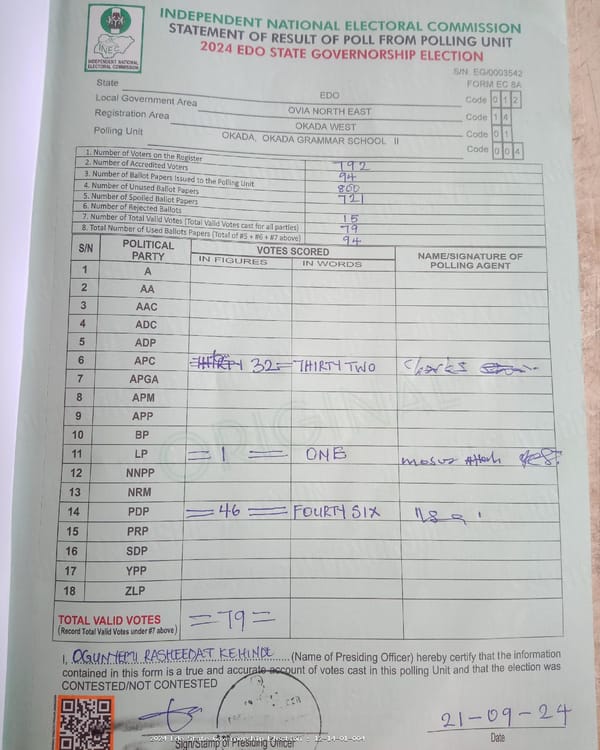 INDEPENDENT NATIONAL ELECTORAL COMMISSION
STATEMENT OF RESULT OF POLL FROM POLLING UNIT
2024 EDO STATE GOVERNORSHIP ELECTION
INEC
INDEPENDENT NATIONAL
ELECTORAL COMMISSION
S/N. EG/0003542
FORM EC 8A
State EDO
Local Government Area OVIA NORTH EAST Code 0 1 2
Registration Area OKADA WEST Code 1 4
Polling Unit OKADA, OKADA GRAMMAR SCHOOL II Code 0 1
Code 0 0 4
1. Number of Voters on the Register 792
2. Number of Accredited Voters 94
3. Number of Ballot Papers Issued to the Polling Unit 800
4. Number of Unused Ballot Papers 721
5. Number of Spoiled Ballot Papers
6. Number of Rejected Ballots 15
7. Number of Total Valid Votes (Total Valid Votes cast for all parties) 79
8. Total Number of Used Ballots Papers (Total of #5 + #6 + #7 above) 94
S/N POLITICAL PARTY VOTES SCORED NAME/SIGNATURE OF POLLING AGENT
IN FIGURES IN WORDS
1 A
2 AA
3 AAC
4 ADC
5 ADP
6 APC 32= THIRTY TWO
7 APGA
8 APM
9 APP
10 BP
11 LP = 1 = ONE
12 NNPP
13 NRM
14 PDP = 46 = FOURTY SIX
15 PRP
16 SDP
17 YPP
18 ZLP
ORIGINAL
TOTAL VALID VOTES =79=
(Record Total Valid Votes under #7 above)
I, OGUNYEMI RASHEEDAT KEHINDE (Name of Presiding Officer) hereby certify that the information
contained in this form is a true and accurate account of votes cast in this polling Unit and that the election was
CONTESTED/NOT CONTESTED
21-09-24
Sign/Stamp of Presiding Officer Date
2024 Edo State Governorship Election - 12-14-01-004